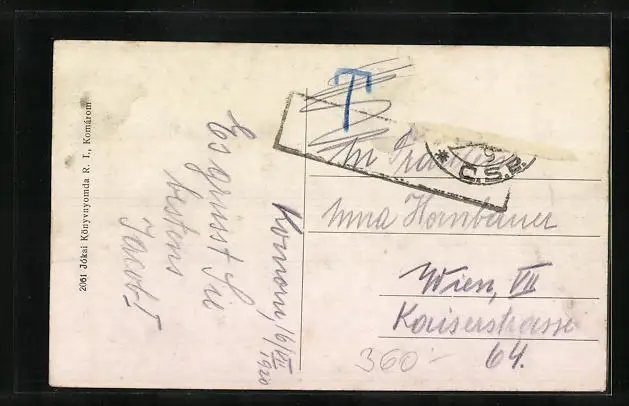 2061 Jókai Könyvnyomda R. I., Komárom
Es grüsst Sie
bestens
Jacob I
Komorn, 16/VII 1920
T
* C.S.P.
An Fräulein
Anna Hornbauer
Wien, VII
Kaiserstrasse
64.
360.-